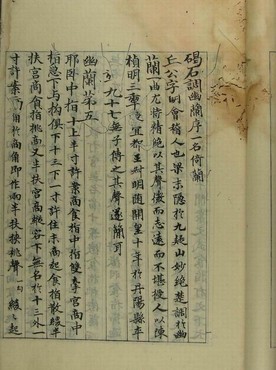 碣石調幽蘭序一名倚蘭
丘公字明會稽人也梁末隱於九疑山妙絕楚調於幽
蘭一曲尤特精絕以其聲微而志遠而不堪授人以陳
禎明三年授宜都王叔明隨開皇十年於丹陽縣卒
年九十七無子傳之其聲遂簡耳
幽蘭第五
耶臥中指十上半寸許案商食指中指雙牽宮商中
指急下與拘俱下十三下一寸許住末商起食指散緩半
扶宮商食指挑商又半扶宮商縱容下無名於十三外一
寸許案商角於商角即作兩半扶挾挑聲一句緩緩起